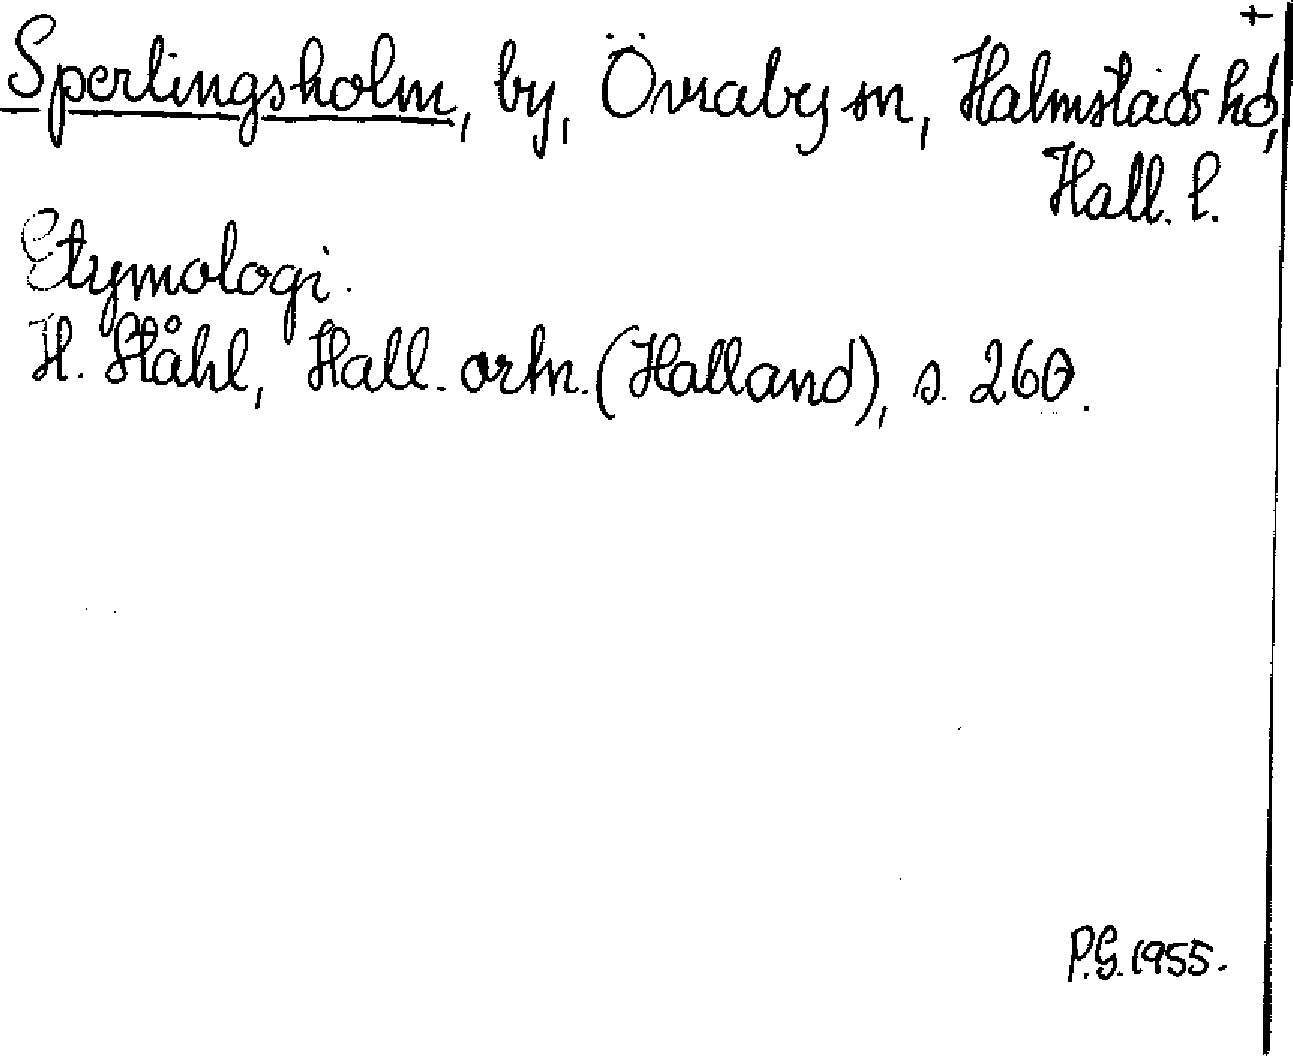 Sperlingsholm, by, Övraby sn, Halmstads hd,
Hall. l.
Etymologi.
H. Ståhl, Hall. ortn. (Halland), s. 260.
P.G. 1955.